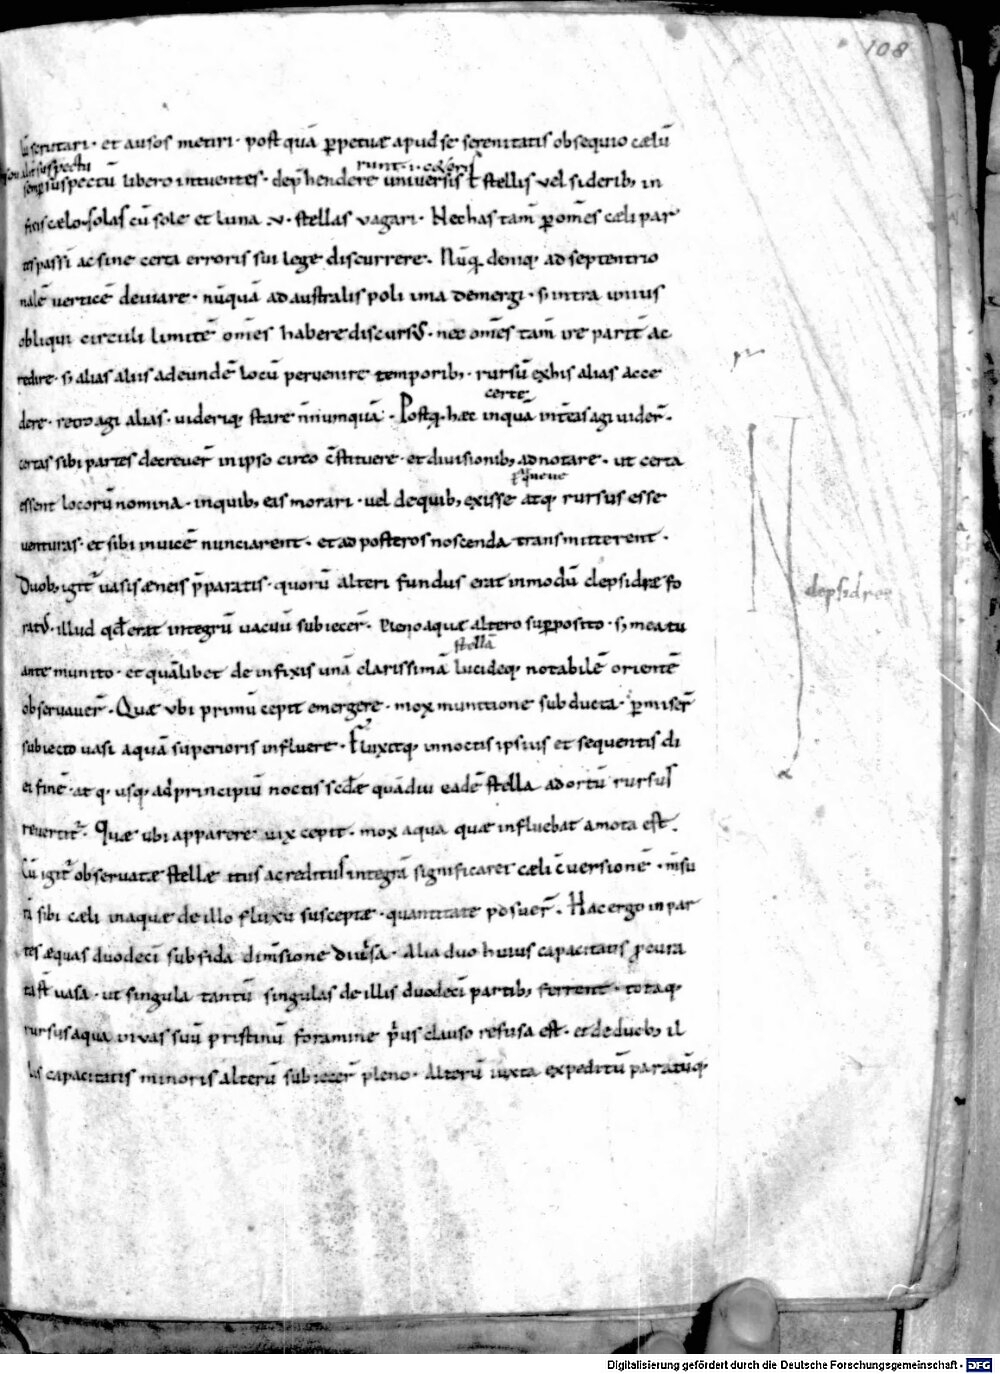 108
scrutari · et ausos metiri · postquā ꝑpetuæ apud se serenitatis obsequio cælū
alit suspectu
runt · i · celeris
semp suspectū libero intuentes · dep̄hendere universis ł stellis vel siderib; in
fixis cælo · solas cū sole et luna · v · stellas vagari · Nec has tam̄ ꝑ om̄es cæli par
tes passī ac sine certa erroris sui lege discurrere · Nūq̄ deniq; ad septentrio
nalē verticē deviare · nūquā ad australis poli ima demergi · s; intra unius
obliqui circuli limitē om̄es habere discursū · nec om̄es tam̄ ire parit̄ ac
redire · s; alias aliis ad eundē locū pervenire temporib; · rursū ex his alias acce
certe
dere · retro agi alias · uideriq; stare n̄nūmquā · Postq̄ hæc inquā int̄ eas agi uider̄ ·
certas sibi partes decrever̄ in ipso circo c̄stituere · et divisionib; adnotare · ut certa
essent locorū nomina · in quib; eas morari · vel de quib; exisse atq; rursus esse
venturas · et sibi invicē nunciarent · et ad posteros noscenda transmitterent ·
Duob; igit̄ uasis æneis p̄paratis · quorū alteri fundus erat in modū clepsidræ fo
clepsidræ
ratꝰ · illud qđ erat integrū vacuū subiecer̄ · pleno aquæ altero suꝑposito · s; meatu
stellā
ante munito · et quālibet de infixis unā clarissimā lucideq; notabilē orientē
observaver̄ · Quæ vbi primū cepit emergere · mox munitione subducta · ꝑmiser̄
subiecto uasi aquā superioris influere · Fluxitq; in noctis ipsius et sequentis di
ei finē · atq; usq; ad principiū noctis scdæ quādiu eadē stella ad ortū rursus
revertit̄ · Quæ ubi apparere vix cepit · mox aqua quæ influebat amota est ·
Cū igit̄ observatæ stellæ itus ac reditus integrā significaret cæli c̄versionē · m̄su
rā sibi cæli in aquæ de illo fluxu susceptæ · quantitate posuer̄ · Hac ergo in par
tes æquas duodecī sub fida dim̄sione divisa · Alia duo huius capacitatis ꝓcura
ta st̄ uasa · ut singula tantū singulas de illis duodecī partib; ferrent · totaq;
rursus aqua in vas suū pristinū foramine p̄us clauso refusa est · et de duob; il
lis capacitatis minoris alterū subiecer̄ pleno · alterū iuxta expeditū paratūq;
Digitalisierung gefördert durch die Deutsche Forschungsgemeinschaft - DFG